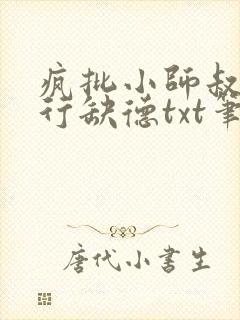 疯批小师叔
行缺德txt筆
唐代小書生